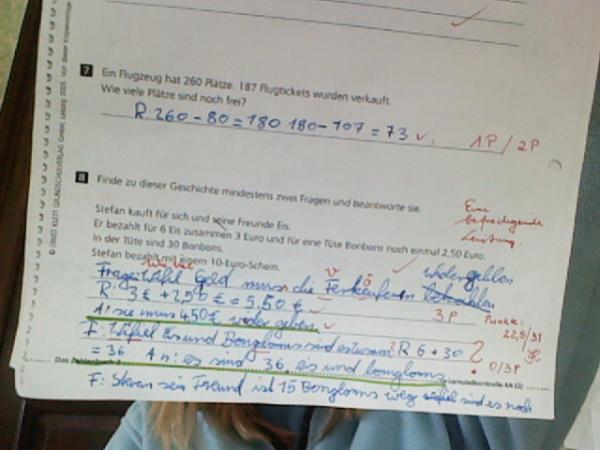 7 Ein Flugzeug hat 260 Plätze. 187 Flugtickets wurden verkauft.
Wie viele Plätze sind noch frei?
R. 260 - 80 = 180 180 - 107 = 73 1P / 2P
8 Finde zu dieser Geschichte mindestens zwei Fragen und beantworte sie.
Eine befriedigende Leistung.
Stefan kauft für sich und seine Freunde Eis.
Er bezahlt für 6 Eis zusammen 3 Euro und für eine Tüte Bonbons noch einmal 2,50 Euro.
In der Tüte sind 30 Bonbons.
Stefan bezahlt mit einem 10-Euro-Schein.
Wie viel
Frage: Wifel Geld mus die
R: 3€ + 2,50 € = 5,50 €
3P
A: sie mus 4,50€ weder geben
Punkte: 22,5/31
F: Wifiel Eis und Bongloms sind es zusam? R 6 + 30
= 36 A n: es sind 36 eis und bongloms
0/3P
Das Zahlenbuch Lernzielkontrolle 4A (2)
F: sein Freund ist 15 Bongloms weg wifiel sind es noch
© ERNST KLETT GRUNDSCHULVERLAG GmbH, Leipzig 2005